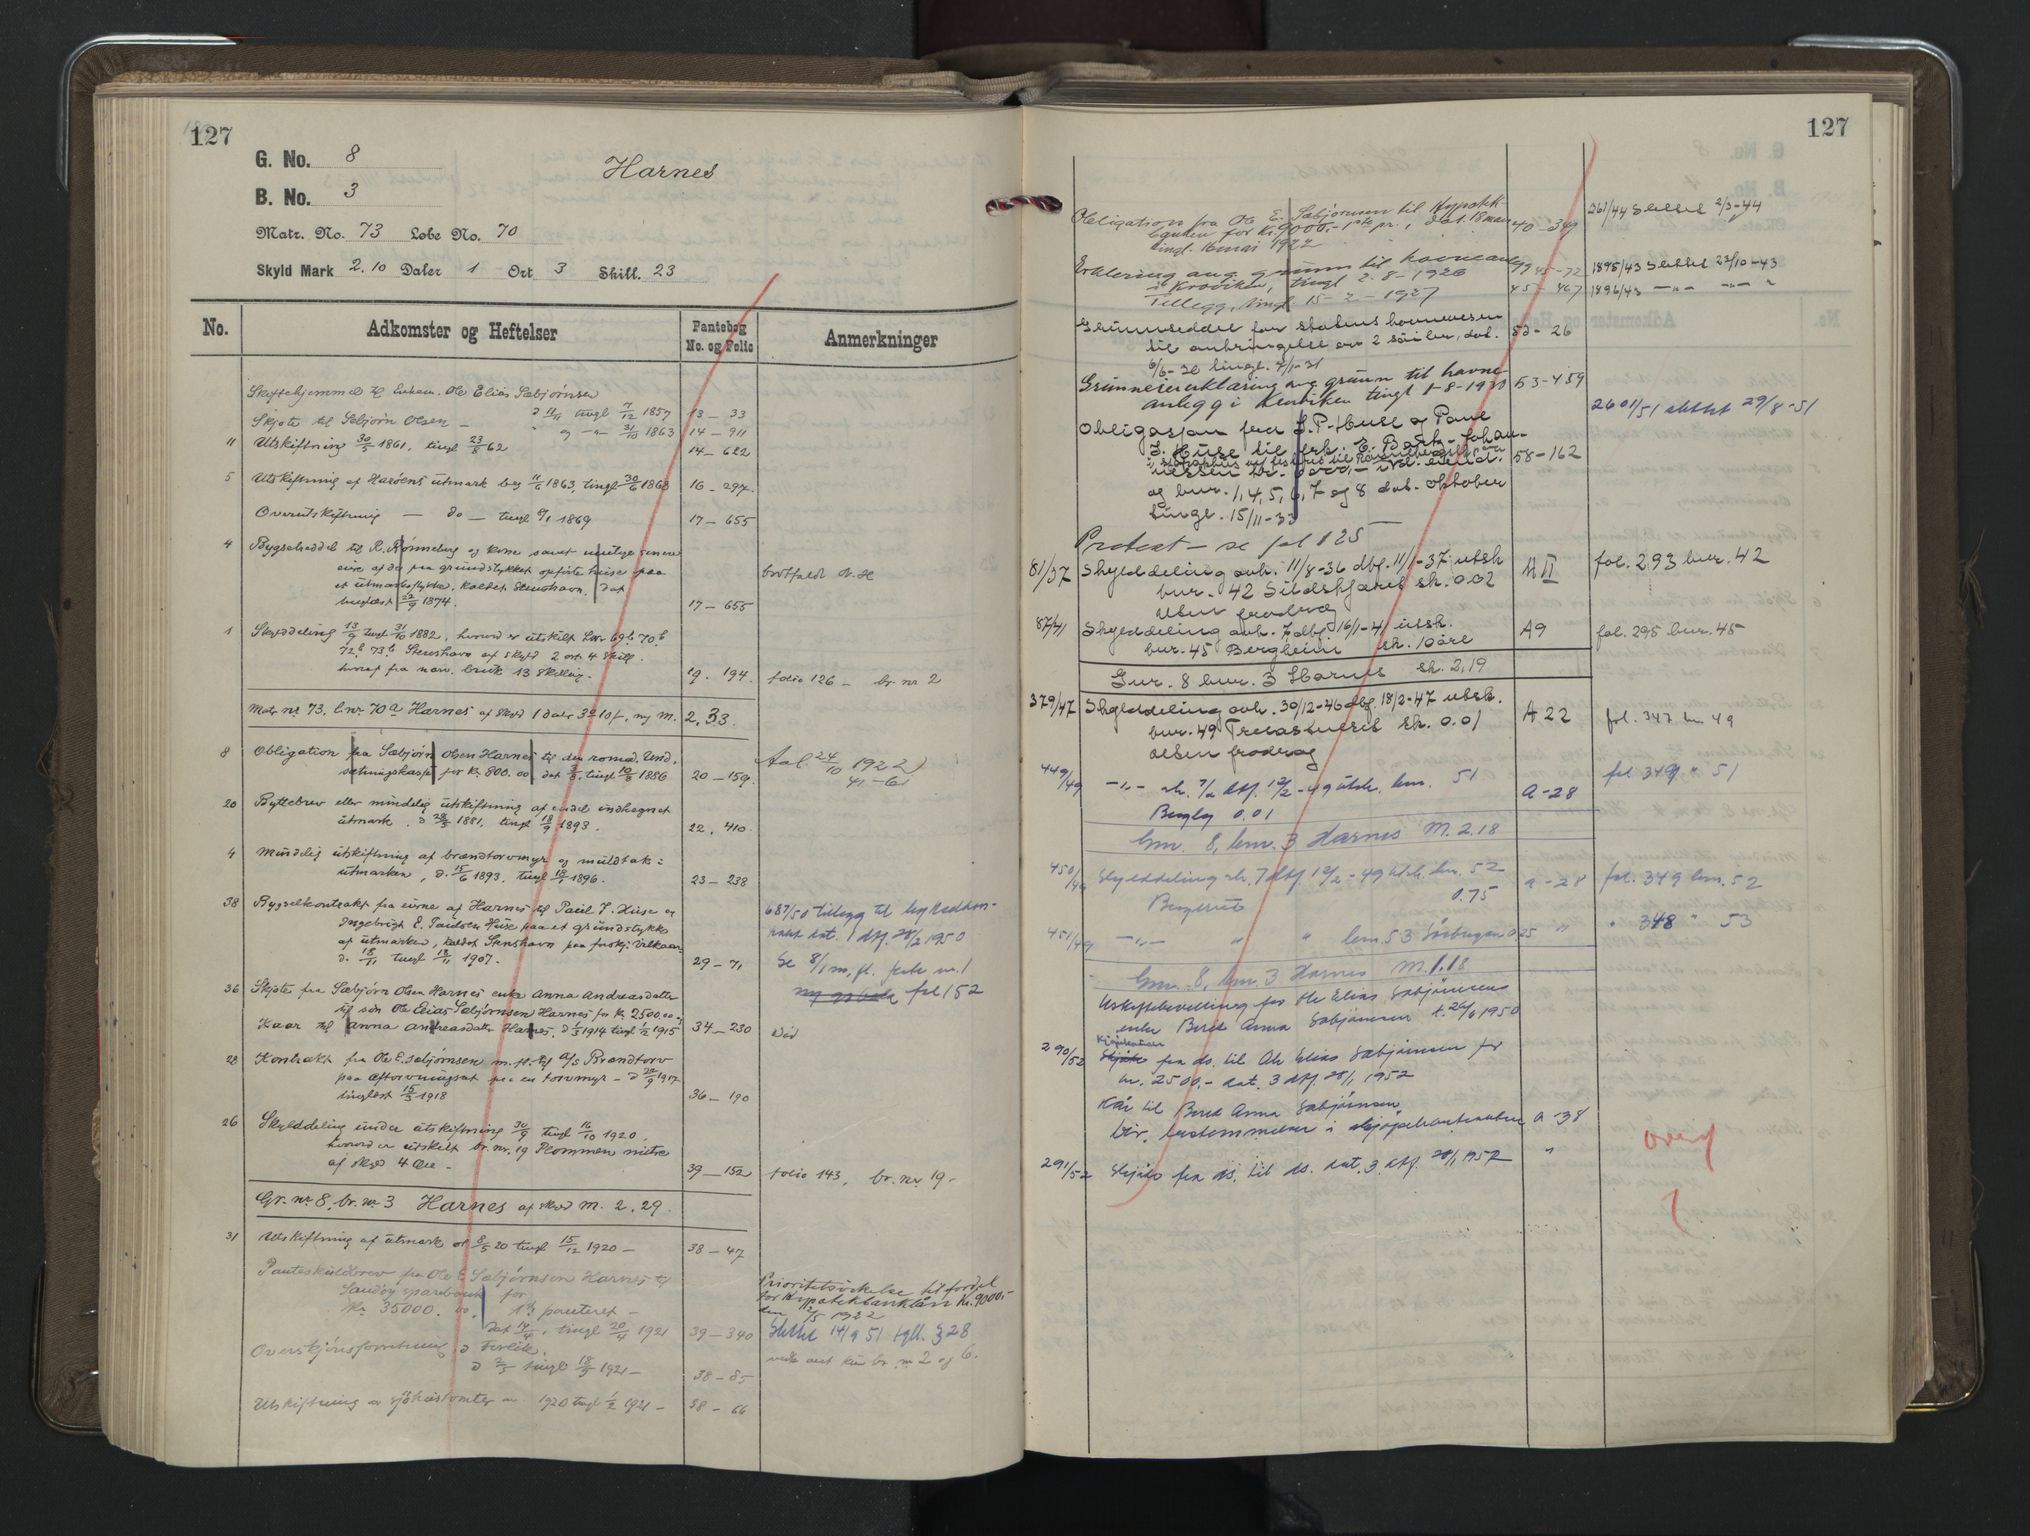 127
G. No. 8
Harnes
B. No. 3
Matr. No. 73 Løbe No. 70
Skyld Mark 2.10 Daler 1 Ort 3 Skill. 23
No. Adkomster og Heftelser Pantebog No. og Folio Anmerkninger
Skiftehjemmel til Enkem. Ole Elias Sæbjørnsen
d 11/11 tingl 7/12 1857 13 — 33
Skjøte til Sæbjørn Olsen — " og —"— 31/10 1863 14 — 911
11 Utskiftning 30/5 1861, tingl 23/8 62 14 — 622
5 Utskiftning af Harøens utmark beg 11/6 1863, tingl 30/6 1868 16 — 297.
Overutskiftning — do — tingl 9/1 1869 17 — 655
4 Bygselseddel til R. Rønneberg og kone samt senere
eire af da paa grundstykket opførte huse paa
et utmarksstykke, kaldet Stenshavn, dat
tinglæst 22/9 1874. 17 — 655
bortfaldt
1 Skylddeling 13/9 tingl 31/10 1882, hvorved er utskilt Lnr 69b 70b
72b 73b Stenshavn af skyld 2 ort 4 skill.
hvoraf fra nærv. bruk 13 skilling. 19. 194. folio 126 — br. nr 2
Matr nr 73, lnr 70a Harnes af skyld 1 daler 3 ort 10 s, ny m. 2,33.
8 Obligation fra Sæbjørn Olsen Harnes til den romsd. Und.
sætningskasse for Kr. 800.00 dat tingl 1886 20 — 159.
Avl. 24/10 1922
41 — 61
20 Byttebrev eller mindelig utskiftning af endel indhegnet
utmark, d 28/5 1881, tingl 18/9 1893. 22. 410.
4 Mindelig utskiftning af brændtorvmyr og muldtak i
utmarken, d. 15/6 1893, tingl 18/1 1896. 23 — 238
38 Bygselkontrakt fra eirne af Harnes til Paul J. Huse og
Ingebrigt E. Paulsen Huse paa et grundstykke
af utmarken, kaldet Stenshavn paa forskj. vilkaar
d. 18/11 tingl 18/11 1907. 29 — 71
687/50 tillegg til bygselkon-
trakt dat. 1 dbf. 28/2 1950
Se 8/1 m. fl. feste nr. 1
fol 152
36 Skjøte fra Sæbjørn Olsen Harnes enke Anna Andreasdatter
til søn Ole Elias Sæbjørnsen Harnes for Kr 2500.00
Kaar til Anna Andreasdatter Harnes, d 1/3 1914 tingl 1/2 1915 34 — 230 død
28 Kontrakt fra Ole E. Sæbjørnsen m. fl. til A/S Brændtorv
paa aftorvningsret paa en torvmyr — d 22/9 1917
tinglæst 15/3 1918 36 — 190
26 Skylddeling under utskiftning 30/9 tingl 16/10 1920.
hvorved er utskilt br. nr. 19 Plommen nitre
af skyld 4 Øre — 39 — 152 folio 143, br. nr 19 —
Gr. nr 8, br. nr 3 Harnes af skyld m. 2,29.
31 Utskiftning af utmark d 8/5 20 tingl 15/12 1920 — 38 — 47
Panteskuldbrev fra Ole E. Sæbjørnsen Harnes til
Sandøy sparebank for
Kr. 35000.00, 1ste panteret —
dat 14/4, tingl 20/4 1921 39 — 340
Prioritetsvikelse til fordel
for Hypotekbanklån Kr. 9000,-
den 2/5 1922
Slettet 14/9 51 tgll. § 28
vedk. ant br. nr 2 og 6.
Overskjønsforretning
d 2/3 tingl 18/3 1921 — 38 — 85
Utskiftning av sjøhustomter av 1920 tingl 1/2 1921 — 38 — 66
127
Obligation fra Ole E. Sæbjørnsen til Hypotek-
banken for Kr. 9000,- 1ste pr., dat. 18 mars
tingl. 16 mai 1922 40 — 349 261/44 Slettet 2/3-44
Erklæring ang. grunn til havneanlegg
i Kroviken, tingl 2-8-1926 45 — 72 1895/43 Slettet 23/10-43
Tillegg, tingl. 15-2-1927 45 — 467 1896/43 —"— —"— "
Grunnseddel for Statens havnevesen
til anbringelse av 2 søiler, dat.
6/6-30 tingl. 7/1-31 53 — 26
Grunneiererklæring ang. grunn til havne-
anlegg i Kroviken tingl 1-8-1931 53-459
Obligasjon fra J. P. Huse og Paul
J. Huse til frk. E. Bank-Johan-
nessen kr. 6000,-
og bnr. 1, 4, 5, 6, 7 og 8 dat. oktober
tingl. 15/11-33 58-162
2601/51 slettet 29/8-51
Protest — se fol 125
81/37 Skylddeling avh. 11/8-36 dbf. 11/1-37 utsk
bnr. 42 Sildskjæret sk. 0.02
uten fradrag A II fol. 293 bnr. 42
87/41 Skylddeling avh. 7 dbf 16/1-41 utsk.
bnr. 45 Bergheim sk. 10 øre A9 fol. 295 bnr. 45
Gnr. 8 bnr. 3 Harnes sk. 2,19
379/47 Skylddeling avh. 30/12-46 dbf. 18/2-47 utsk.
bnr. 49 sk. 0.01
uten fradrag A 22 fol. 347 bnr 49
449/49 —"— avh. 7/2 dbf. 12/2-49 utsk. bnr. 51
Bergly 0.01 A-28 fol 349 " 51
Gnr. 8, bnr. 3 Harnes M. 2.18
450/49 Skylddeling avh. 7 dbf 12/2-49 utsk. bnr. 52
0.75 A-28 fol. 349 bnr. 52
451/49 —"— " " bnr. 53 0.25 " " 348 " 53
Gnr. 8, bnr. 3 Harnes M. 1.18
Uskiftebevilling for Ole Elias Sæbjørnsens
enke Berit Anna Sæbjørnsen t. 26/6 1950
290/52 Skjøte fra ds. til Ole Elias Sæbjørnsen for
kr. 2500,- dat. 3 dbf. 28/1 1952
Kår til Berit Anna Sæbjørnsen
div. bestemmelser i kjøpekontrakten A-38
291/52 Skjøte fra ds. til ds. dat. 3. dbf. 28/1 1952 "
overf